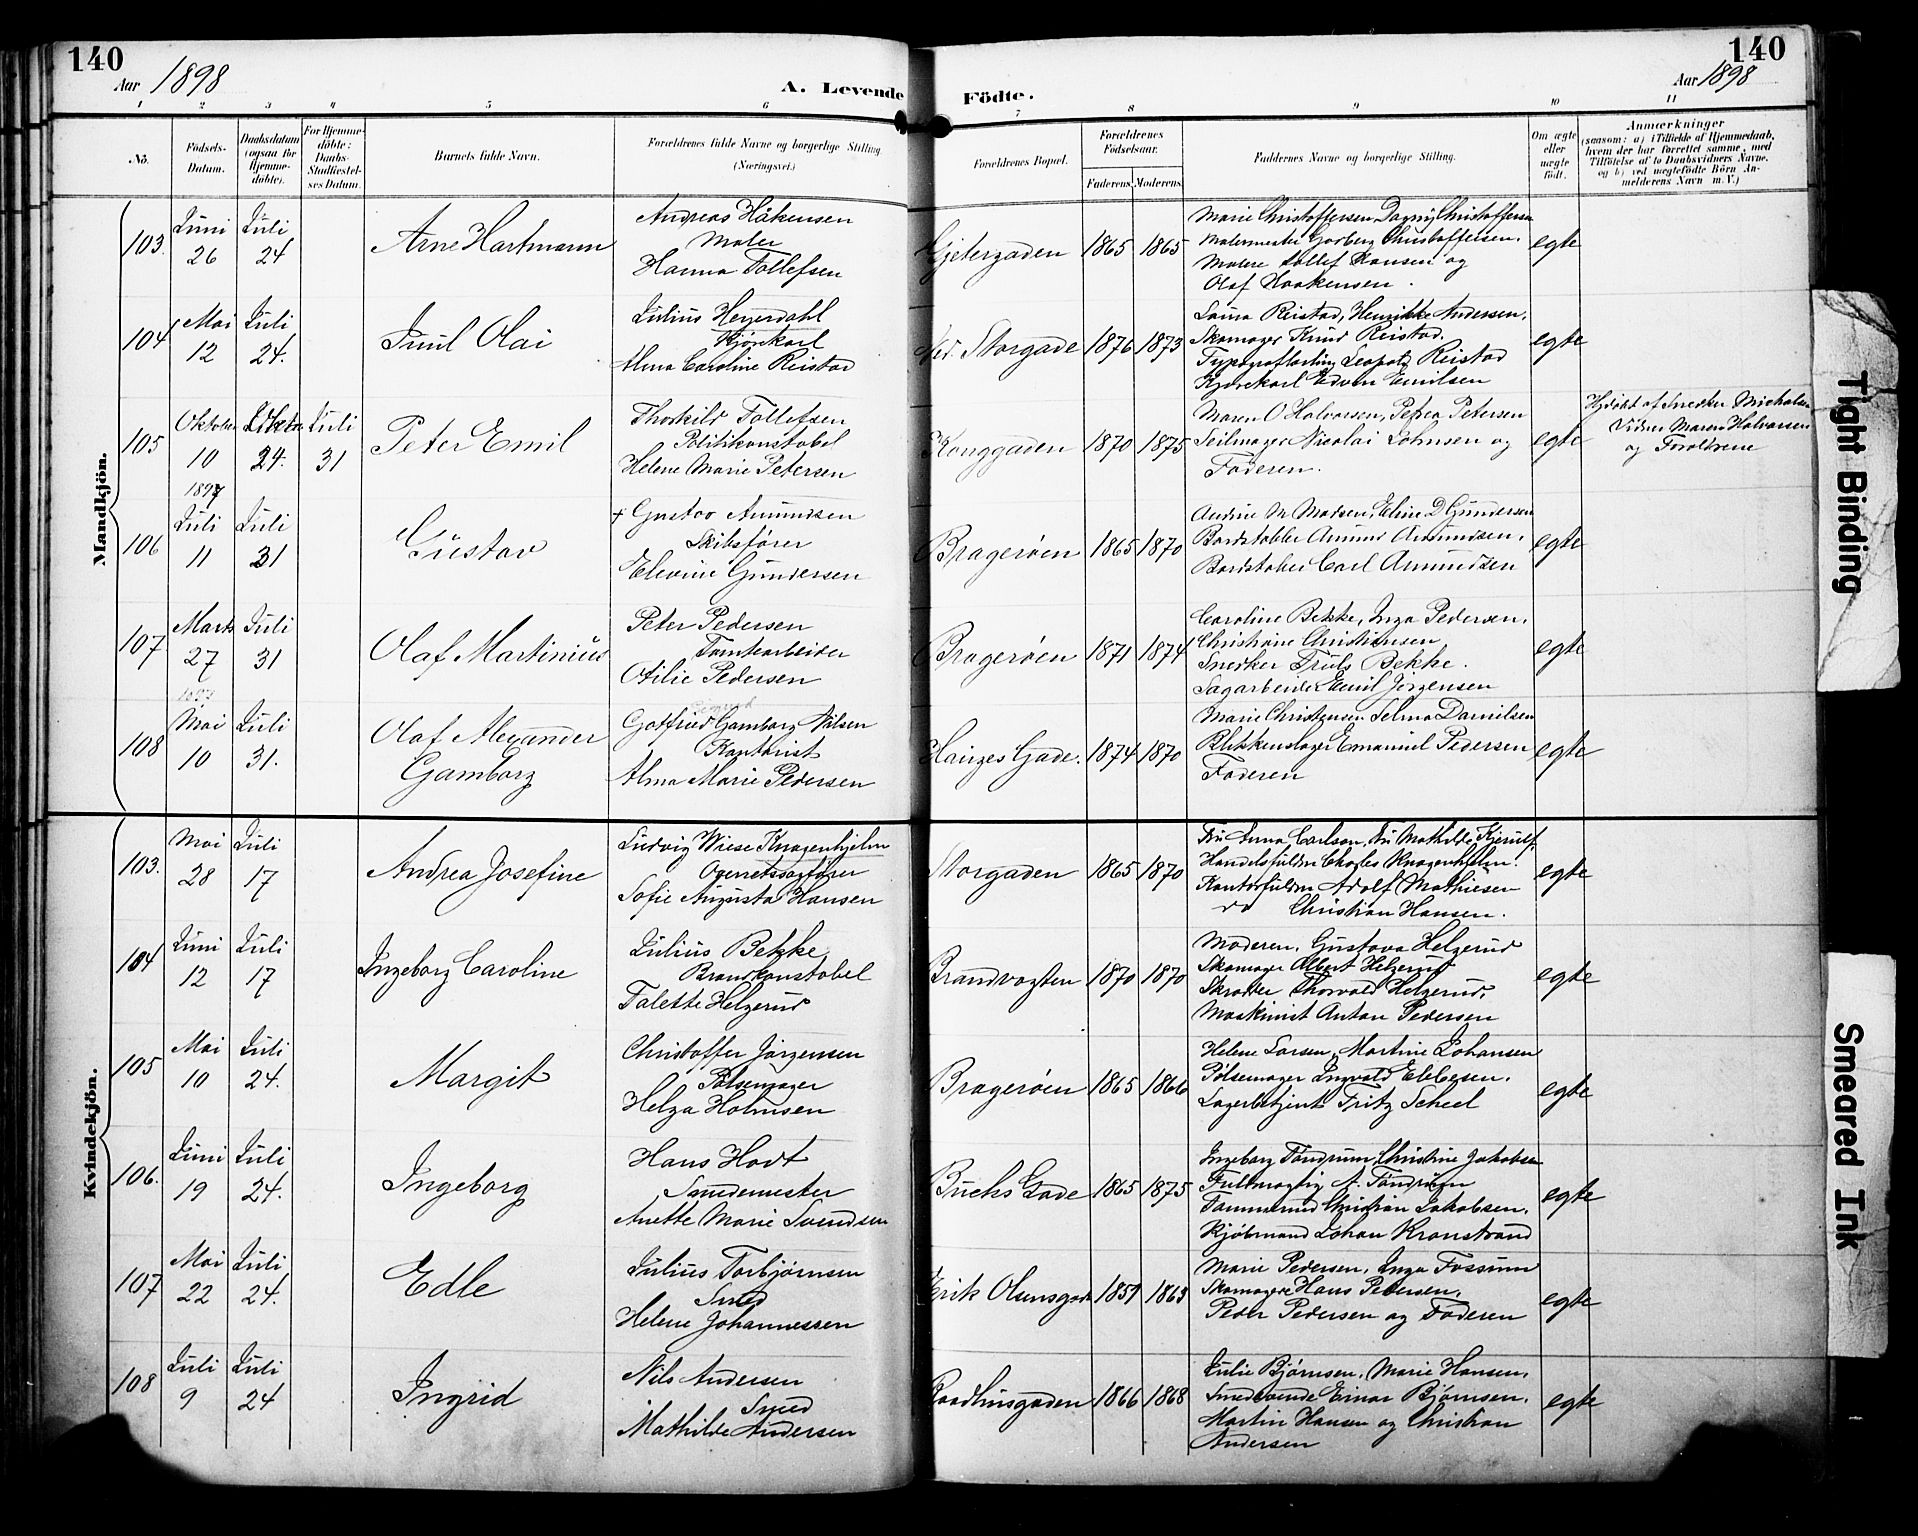 140
Aar 1898
A. Levende
Födte.
140
Aar 1898
1 2 3 4 5 6 7 8 9 10 11
No.
Födsels-
Datum.
Daabsdatum
(ogsaa for
Hjemme-
döbte).
For Hjemme-
döbte:
Daabs-
Stadfæstel-
ses Datum.
Barnets fulde Navn.
Forældrenes fulde Navne og borgerlige Stilling
(Næringsvei.)
Forældrenes Bopæl.
Forældrenes
Födselsaar.
Faderens
Moderens
Faddernes Navne og borgerlige Stilling.
Om ægte
eller
uægte
födt.
Anmærkninger
(saasom: a) i Tilfælde af Hjemmedaab,
hvem der har forrettet samme, med
Tilföielse af to Daabsvidners Navne.
og b) ved uægtefödte Börn An-
melderens Navn m. V.)
Mandkjön.
103.
Juni
26
Juli
24
Arne Hartmann
Andreas Håkensen
Maler
Hanna Tollefsen
Gjetergaden
1865
1865
Marie Christoffersen, Dagny Christoffersen
Malermester Christoffersen.
Malere Tollef Hansen og
Olaf Haakensen.
egte
104
Mai
12
Juli
24.
Juul Olai
Julius Heyerdahl
Kjørekarl
Alma Caroline Reistad
Ned. Storgade
1876
1873
Laura Reistad, Henrikke Andersen.
Skomager Knud Reistad.
Leopold Reistad
Kjørekarl Edvin Emilsen
egte
105
Oktober
10
1897
24.
Juli
31
Peter Emil
Thorkild Tollefsen
Politikonstabel
Helene Marie Petersen
Konggaden
1870
1875
Maren O Halvorsen, Petrea Petersen
Seilmager Nicolai Johnsen og
Faderen.
egte
Hjdøbt af Snedker Michalsen
Vidner Maren Halvorsen
og Foreldrene
106
Juli
11
Juli
31
Gustav
+ Gustav Amundsen
Skibsfører
Elevine Gundersen
Bragerøen
1865
1870
Andrine M Madsen, Eline D Gundersen
Bordstabler Amund Amundsen.
Bordstabler Carl Amundsen
egte
107
Marts
27
Juli
31
Olaf Martinius
Peter Pedersen
Tomtearbeider
Otilie Pedersen
Bragerøen
1871
1874
Caroline Bekke, Inga Pedersen.
Christiane Christiansen
Snedker Truls Bekke.
Sagarbeider Emil Jörgensen
egte
108
1897
Mai
10
Juli
31.
Olaf Alexander
Gamborg
Gotfried Gamborg Nilsen
Kontorist
Alma Marie Pedersen
Hauges Gade.
1874
1870
Marie Christensen Selma Danielsen
Blikkenslager Emanuel Pedersen
Faderen
egte
Kvindekjön.
103.
Mai
28
Juli
17
Andrea Josefine
Ludvig Wiese Knagenhjelm
Overretssagfører
Sofie Augusta Hansen
Storgaden
1865
1870
Fru Anna Carlson, Fru Mathilde Kjerulf,
Handelsfuldm Charles Knagenhjelm.
Kontorfuldm Adolf Mathiesen
do Christian Hansen.
egte
104
Juni
12
Juli
17
Ingeborg Caroline
Julius Bekke
Brandkonstabel
Talette Helgerud
Brandvagten
1870
1870
Moderen, Gustava Helgerud
Skomager Albert Helgerud
Skredder Thorvald Helgerud.
Maskinist Anton Pedersen
egte
105
Mai
10
Juli
24.
Margit
Christoffer Jörgensen
Pølsemager
Helga Holmsen
Bragerøen
1865
1866
Helene Larsen, Martine Johansen
Pølsemager Ingvald Ebbesen.
Lagerbetjent Fritz Scheel
egte
106.
Juni
19
Juli
24.
Ingeborg
Hans Hovt
Smedemester
Anette Marie Svendsen
Buchs Gade
1865
1875
Ingeborg Tandrum, Christine Jakobsen
Fuldmægtig A. Tandrum
Tømmermand Christian Jakobsen.
Kjøbmand Johan Kronstrand
egte
107
Mai
22
Juli
24.
Edle
Julius Torbjørnsen
Smed
Helene Johannessen
Erik Olsensgade
1859
1863
Marie Pedersen. Inga Fossum
Skomagere Hans Pedersen.
Peder Pedersen og Faderen
egte
108
Juli
9
Juli
24
Ingrid
Nils Andersen
Smed
Mathilde Andersen
Raadhusgaden
1866
1868
Julie Bjørnsen. Marie Hansen.
Smedsvende Einar Bjørnsen.
Martin Hansen og Christian
Andersen
egte
Tight Binding
Smeared Ink